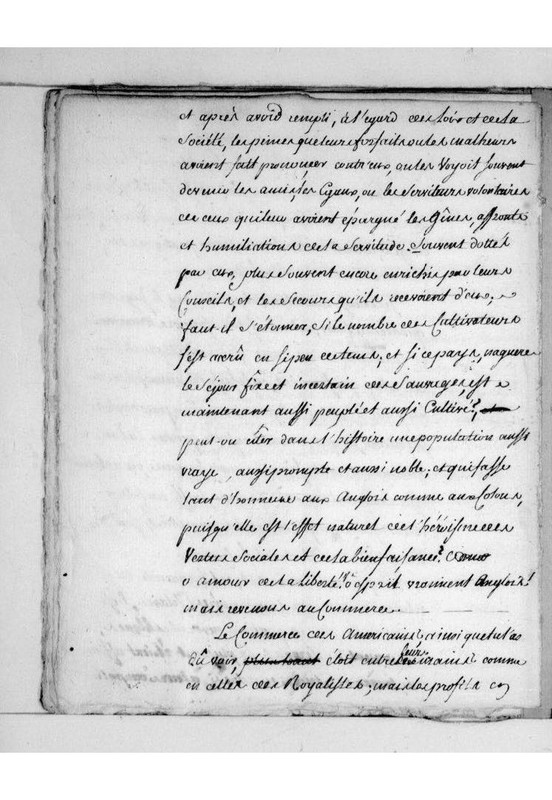 et après avoid rempli, à l'egard des loix et de la
Société, les peines que leurs forfaits ou les malheurs
avoient fait prononcer contr'eux, on les Voyoit souvent
devenir les amis, les Egaux, ou les serviteurs volontaires
de ceux qui leur avoient épargné les Gênes, affronts
et humiliations de la servitude. Souvent dottés
par eux, plus souvent encore enrichis par leurs
Conseils, et les secours qu'ils recevoient d'eux,
faut-il s'étonner, si le nombre des Cultivateurs
s'est accrû en si peu de tems; et si ce pays, naguere
le séjour fixe et incertain des Sauvages, est
maintenant aussi peuplé et aussi Cultivé?
peut-on citer dans l'histoire une population aussi
vraye, aussi prompte et aussi noble; et qui fasse
tant d'honneur aux Anglois comme aux Colons,
puisqu'elle est l'effet naturel de l'héroïsme des
Vertus Sociales et de la bienfaisance?
ô amour de la Liberté! ô esprit vraiment Anglois!
mais revenons au Commerce.
Le Commerce des Americains ainsi que tu l'as
Pû voir, plus haut étoit entre leurs mains comme
en celles des Royalistes; mais les profits en